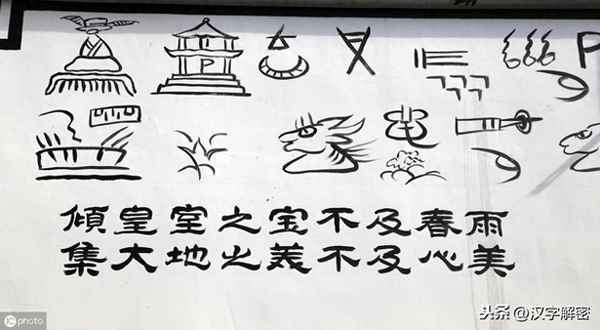 P
P
傾皇室之宝不及春雨
集大地之義不及心美
photo
头条@汉字解密